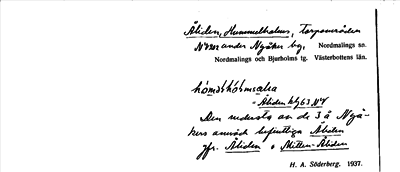 Åliden, Hummelholms, Torpområden
under Nyåker by, Nordmalings sn.
Nordmalings och Bjurholms tg. Västerbottens län.
Åliden
Den nedersta av de 3 å Nyå-
kers område befintliga Åliden
jfr. Åliden o Mitten-Åliden
H. A. Söderberg. 1937.